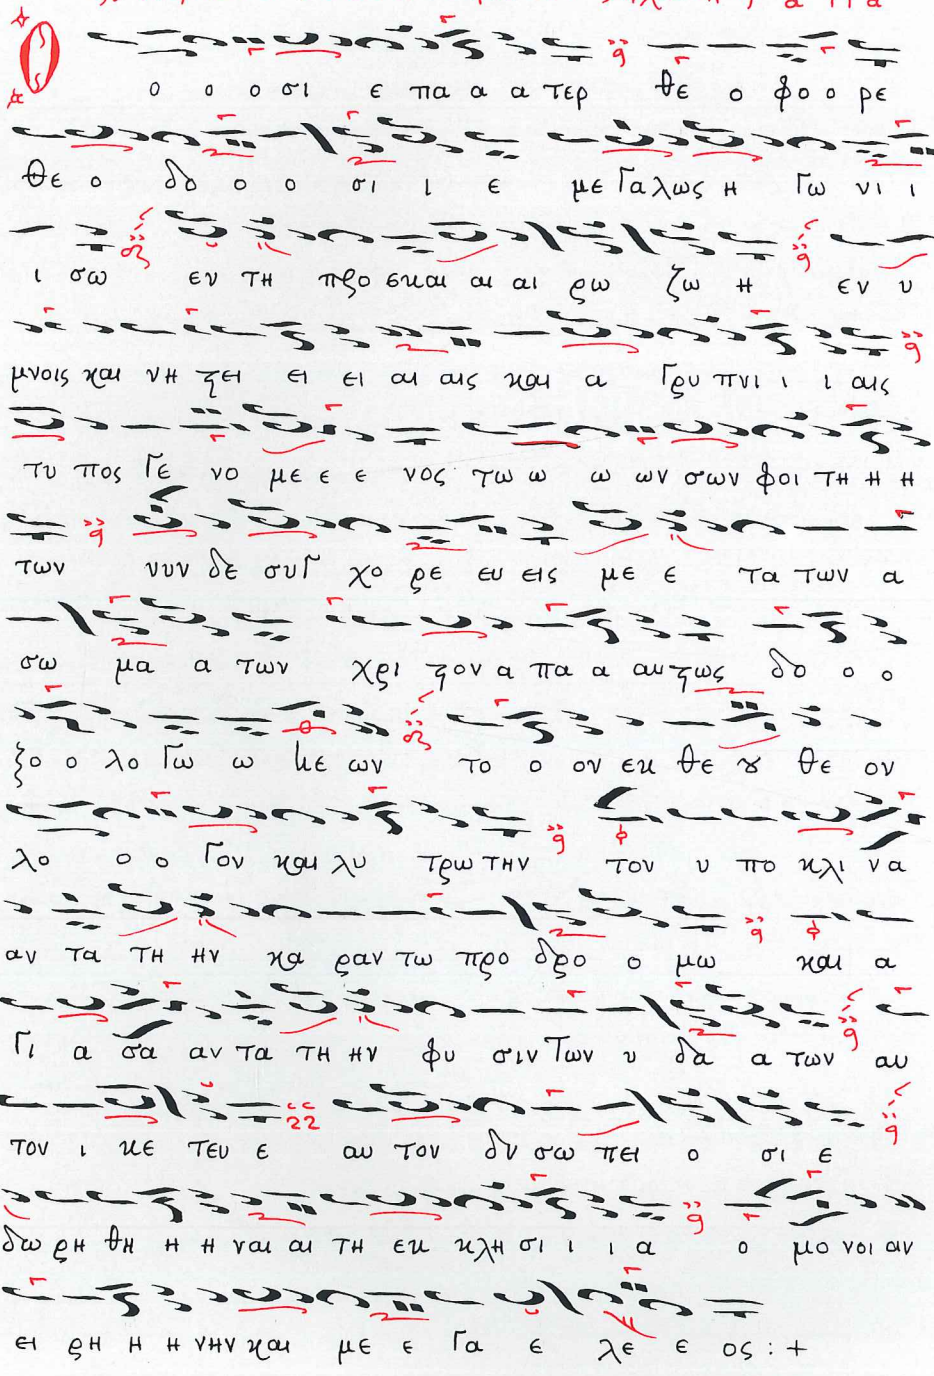 Ο ο ο ο σι ε πα α α τερ θε ο φο ο ρε
θε ο δο ο ο σι ι ε με Γα λως η Γω νι ι
ι σω εν τη προ σκαι αι αι ρω ζω η εν υ
μνοις και νη ϛει ει ει αι αις και α Γρυ πνι ι ι αις
τυ πος Γε νο με ε ε νος τω ω ω ων σων φοι τη η η
των νυν δε συΓ χο ρε ευ εις με ε τα των α
σω μα α των χρι ϛον α πα α αυ ϛως δο ο ο
ξο ο λο Γω ω με ων το ο ον εκ θε ȣ θε ον
λο ο ο Γον και λυ τρω την τον υ πο κλι να
αν τα τη ην κα ραν τω προ δρο ο μω και α
Γι α σα αν τα τη ην φυ σιν των υ δα α των αυ
τον ι κε τευ ε αυ τον δυ σω πει ο σι ε
δω ρη θη η η ναι αι τη εκ κλη σι ι ι α ο μο νοι αν
ει ρη η η νην και με ε Γα ε λε ε ος : +